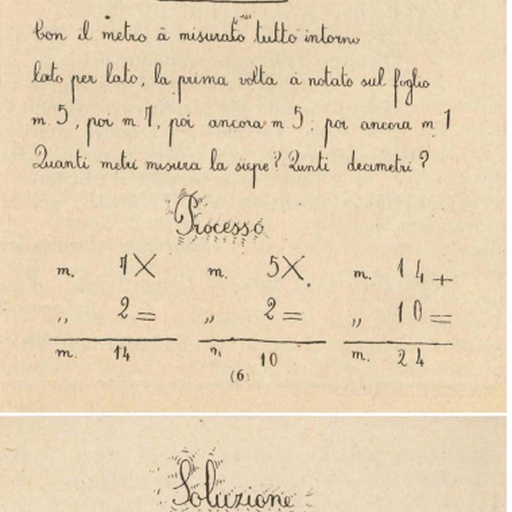 Con il metro à misurato tutto intorno
lato per lato, la prima volta à notato sul foglio
m. 5, poi m. 7, poi ancora m 5, poi ancora m. 7
Quanti metri misura la siepe? Qunti decimetri?
Processo
m. 7 X m. 5 X. m. 14 +
„ 2 = „ 2 = „ 10 =
m. 14 m. 10 m. 24
(6)
Soluzione